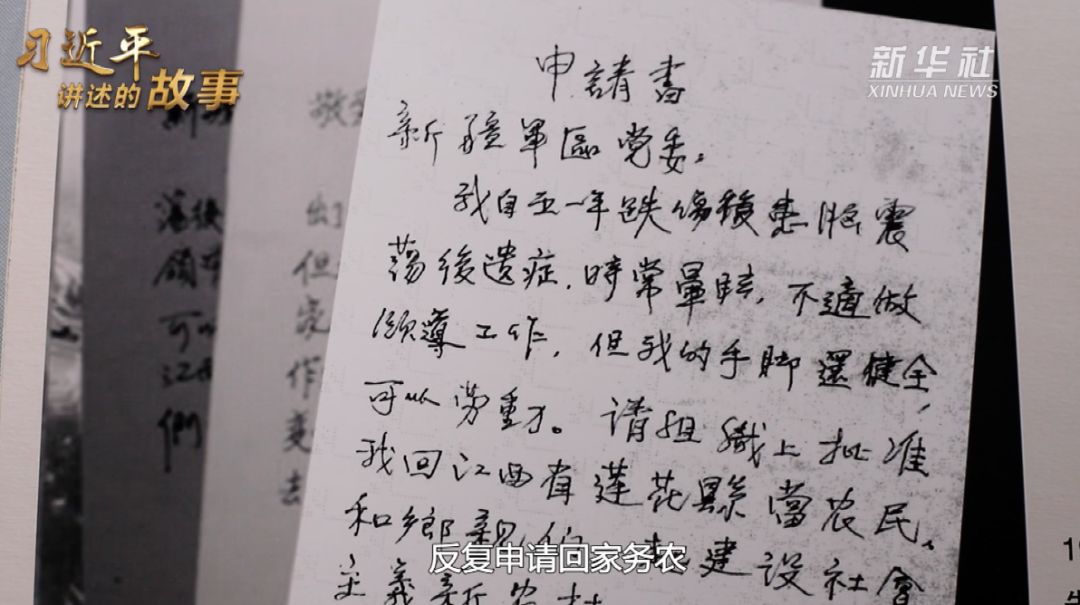 习近平
讲述的故事
新华社
XINHUA NEWS
申請書
新疆軍區党委。
我自五一年跌傷後患脑震
蕩後遺症，時常暈眩，不適做
領導工作，但我的手脚還健全，
可以劳動。请组織上批准
我回江西省蓮花縣當农民，
和鄉親们一起建设社會
主義新农村
敬
落後
領
可以
江西
們
出
但
家
作
去
反复申请回家务农
19